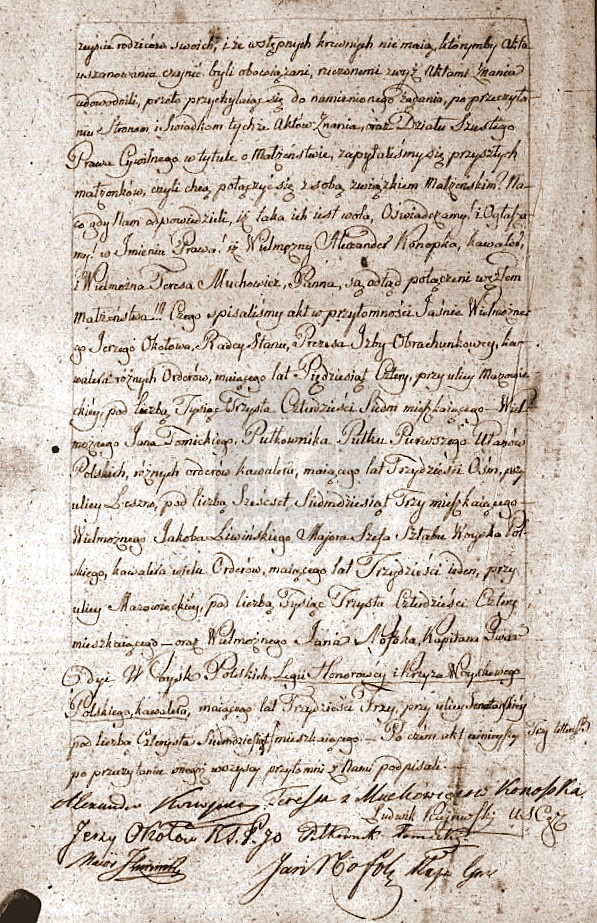 zeyscie rodziców swoich, i że wstępnych krewnych nie maią, którymby Akta
uszanowania czynić byli obowiązani, rzeczonemi zwyż Aktami Znania
udowodnili, przeto przychylaiąc się do namienionego żądania, po przeczyta
niu Stronom i Swiadkom tychże Aktów Znania, oraz Działu Szóstego
Prawa Cywilnego w tytule o Małżeństwie, zapytaliśmy się przyszłych
małżonków, czyli chcą połączyć się z sobą związkiem Małżenskim? Na
co gdy Nam odpowiedzieli, iż taka ich iest wola, Oswiadczamy! i Ogłasza
my! w Imieniu Prawa! iż Wielmożny Alexander Konopka, kawaler,
i Wielmożna Teresa Muchowicz, Panna, są odtąd połączeni węzłem
małżenstwa!!! Czego spisalismy akt w przytomności Jaśnie Wielmożne
go Jerzego Okołowa, Radcy Stanu, Prezesa Izby Obrachunkowey, ka
walera różnych Orderów, maiącego lat Pięćdziesiąt Cztery, przy ulicy Mazowie
ckiéy, pod liczbą Tysiąc Trzysta Czterdzieści Siedm mieszkaiącego – Wiel
możnego Jana Tomickiego, Pułkownika Pułku Pierwszego Ułanów
Polskich, różnych orderów kawalera, maiącego lat Trzydzieści Ośm, przy
ulicy Leszno, pod liczbą Sześćset Siedmdziesiąt Trzy mieszkaiącego –
Wielmożnego Jakoba Liwińskiego Majora Szefa Sztabu Woyska Pol
skiego, kawalera wielu Orderów, maiącego lat Trzydzieści ieden, przy
ulicy Mazowieckiéy, pod liczbą Tysiąc Trzysta Czterdzieści Cztery
mieszkaiącego – oraz Wielmożnego Jana Nofoka, Kapitana Gwar
dyi Woysk Polskich, Legii Honorowéy i Krzyża Woyskowego
Polskiego, kawalera, maiącego lat Trzydzieści Trzy, przy ulicy Senatorskiéy
pod liczbą Czterysta Siedmdziesiąt mieszkaiącego – Po czem akt ninieyszy
Trzy
po przeczytaniu onego wszyscy przytomni z Nami podpisali –
Alexander Konopka Teresa z Muchowiczów Konopka
Ludwik Rajewski USC
Jerzy Okołów Pułkownik Tomicki
Jan Kap: Gw: